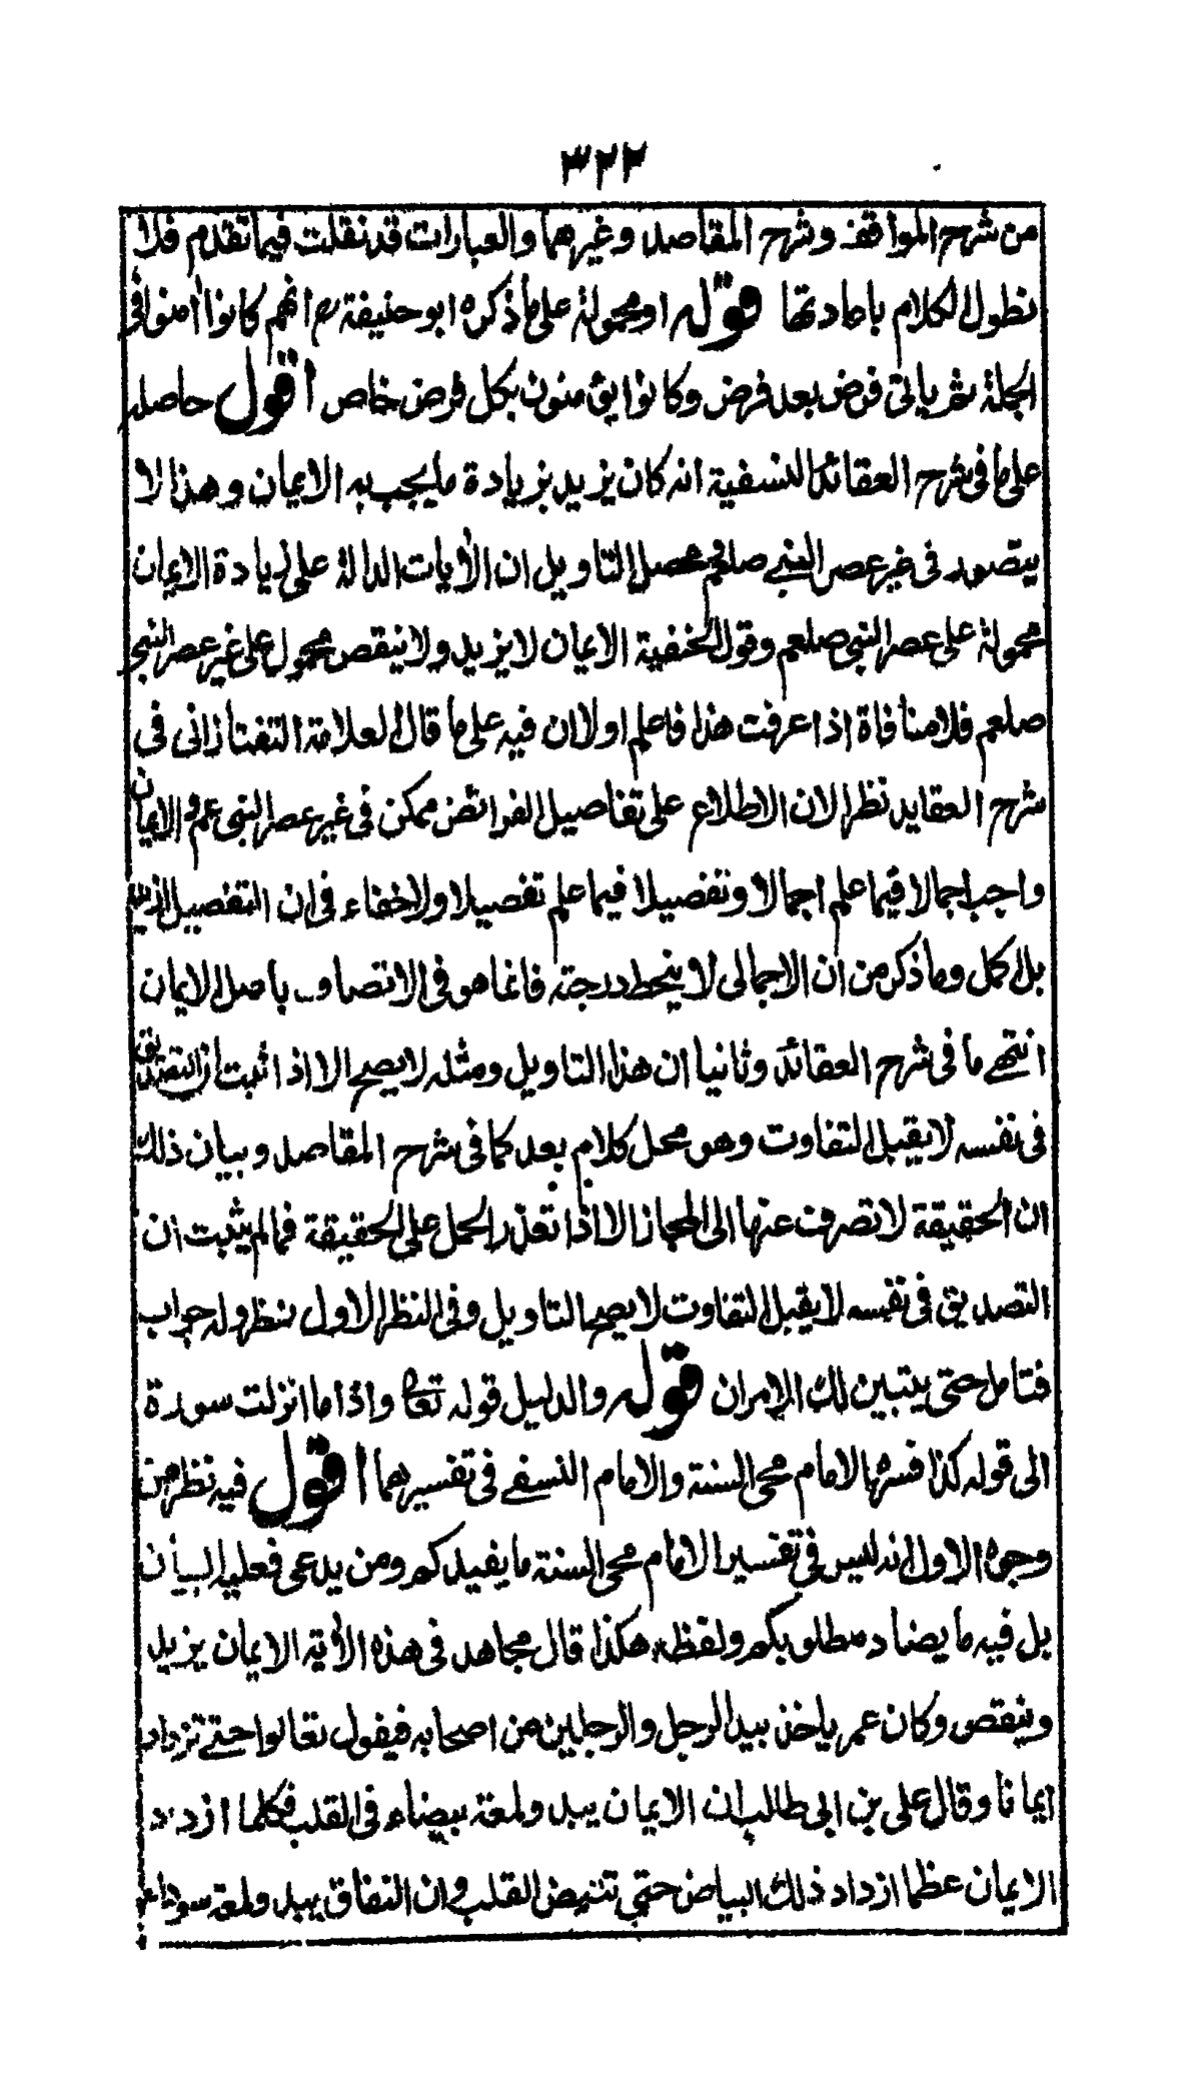 ٣٢٢
من شرح المواقف وشرح المقاصد وغيرهما والعبارات قد نقلت فيما تقدم فلا
نطول الكلام باعادتها قوله او محمولة على ما ذكره ابو حنيفة رح انهم كانوا اٰمنوا فى
الجملة ثم ياتى فرض بعد فرض وكانوا يؤمنون بكل فرض خاص اقول حاصله
على ما فى شرح العقائد النسفية انه كان يزيد بزيادة ما يجب به الايمان وهذا لا
يتصور فى غير عصر النبى صلعم محصل التاويل ان الاٰيات الدالة على زيادة الايمان
محمولة على عصر النبى صلعم وقول الحنفية الايمان لا يزيد ولا ينقص محمول على غير عصر النبى
صلعم فلا منافاة اذا عرفت هذا فاعلم اولا ان فيه على ما قال العلامة التفتازانى فى
شرح العقايد نظرا لان الاطلاع على تفاصيل الفرائض ممكن فى غير عصر النبى عم والايمان
واجب اجمالا فيما علم اجمالا وتفصيلا فيما علم تفصيلا ولا خفاء فى ان التفصيل ازيد
بل اكمل وما ذكر من ان الاجمالى لا ينحط درجته فانما هو فى الاتصاف باصل الايمان
انتهى ما فى شرح العقائد وثانيا ان هذا التاويل ومثله لا يصح الا اذا ثبت ان التصديق
فى نفسه لا يقبل التفاوت وهو محل كلام بعد كما فى شرح المقاصد وبيان ذلك
ان الحقيقة لا تصرف عنها الى المجاز الا اذا تعذر الحمل على الحقيقة فما لم يثبت ان
التصديق فى نفسه لا يقبل التفاوت لا يصح التاويل وفى النظر الاول نظر وله جواب
فتامل حتى يتبين لك الامران قوله والدليل قوله تعالى واذا ما انزلت سورة
الى قوله كذا فسرها الامام محى السنة والامام النسفى فى تفسيرهما اقول فيه نظر من
وجوه الاول انه ليس فى تفسير الامام محى السنة ما يفيدكم ومن يدعى فعليه البيان
بل فيه ما يضاد مطلوبكم ولفظه هكذا قال مجاهد فى هذه الاٰية الايمان يزيد
وينقص وكان عمر ياخذ بيد الرجل والرجلين من اصحابه فيقول تعالوا حتى نزداد
ايمانا وقال على بن ابى طالب ان الايمان يبدو لمعة بيضاء فى القلب فكلما ازداد
الايمان عظما ازداد ذلك البياض حتى تبيض القلب وان النفاق يبدو لمعة سوداء